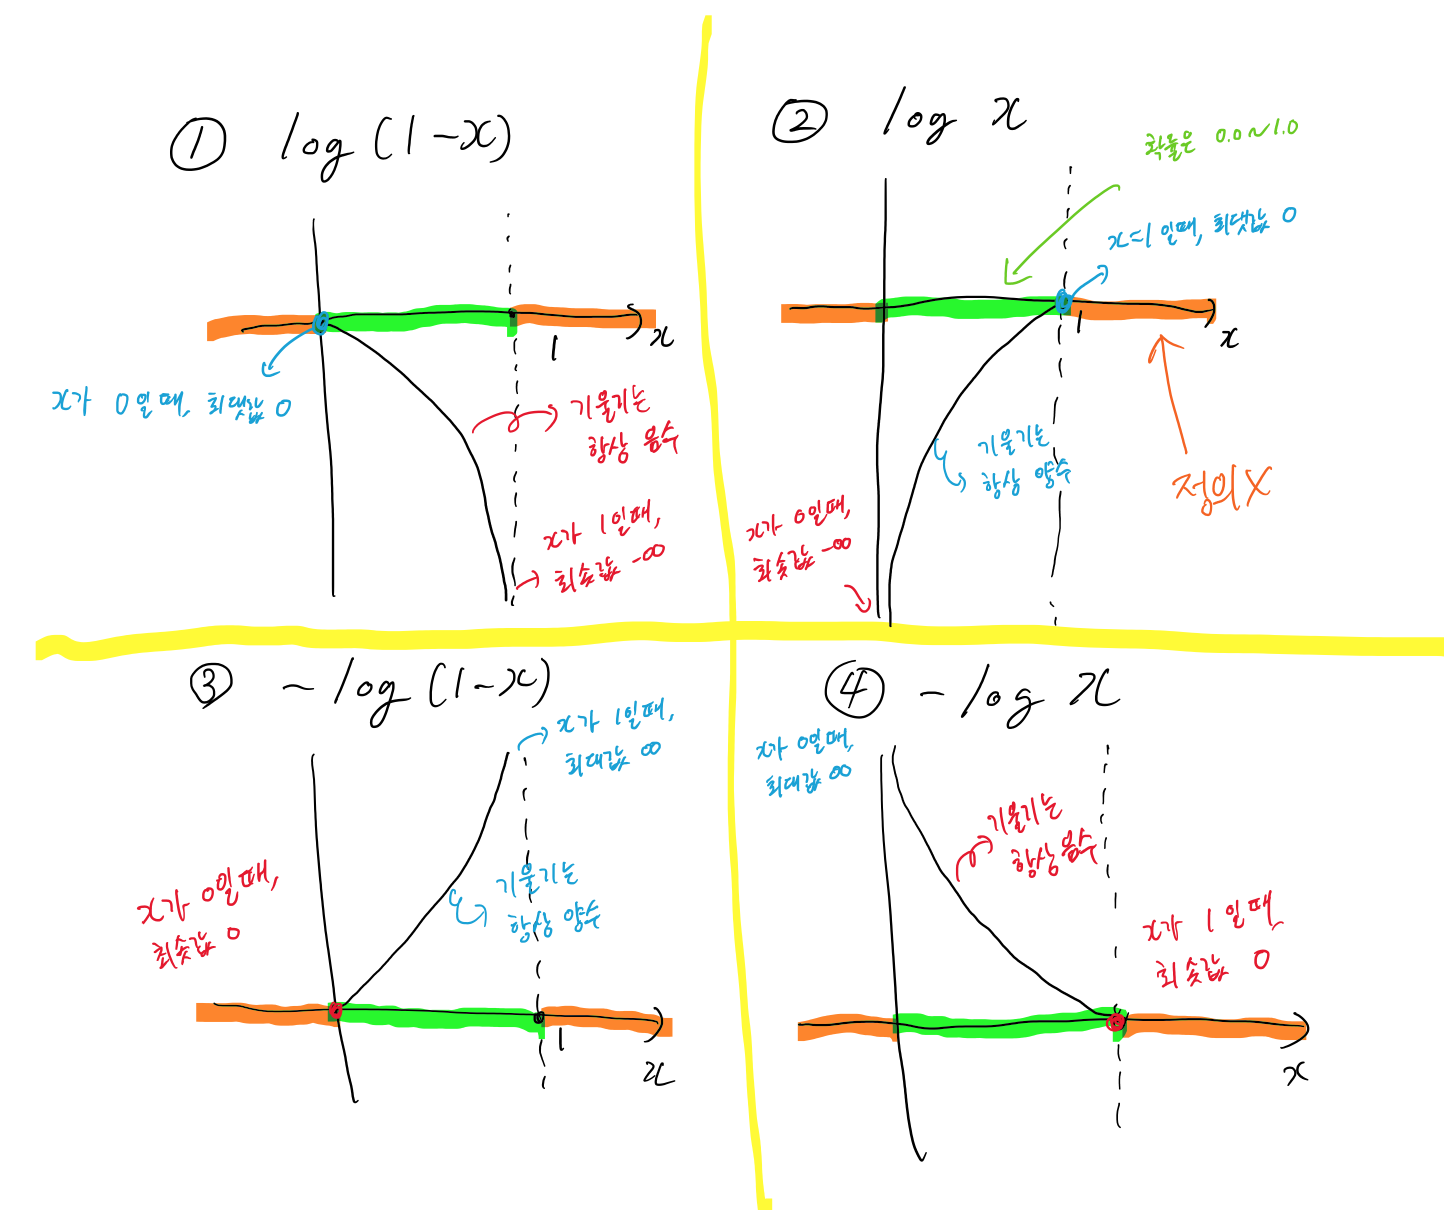 ① log (1-x)
1
x
x가 0일때, 최댓값 0
기울기는
항상 음수
x가 1일때,
최솟값 -∞
② log x
확률은 0.0~1.0
x=1일때, 최댓값 0
1
x
기울기는
항상 양수
정의X
x가 0일때,
최솟값 -∞
③ -log (1-x)
x가 1일때,
최대값 ∞
기울기는
항상 양수
x가 0일때,
최솟값 0
1
x
④ -log x
x가 0일때,
최대값 ∞
기울기는
항상 음수
x가 1일때,
최솟값 0
x